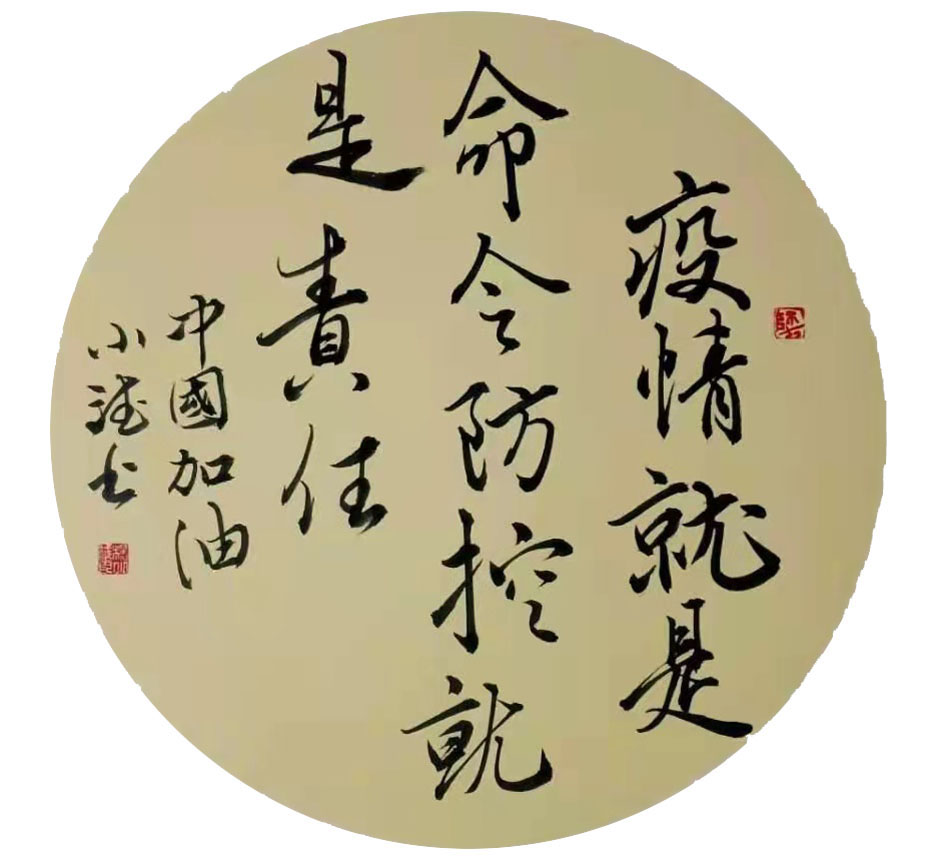 疫情就是
命令防控就
是責任
中國加油
小
书